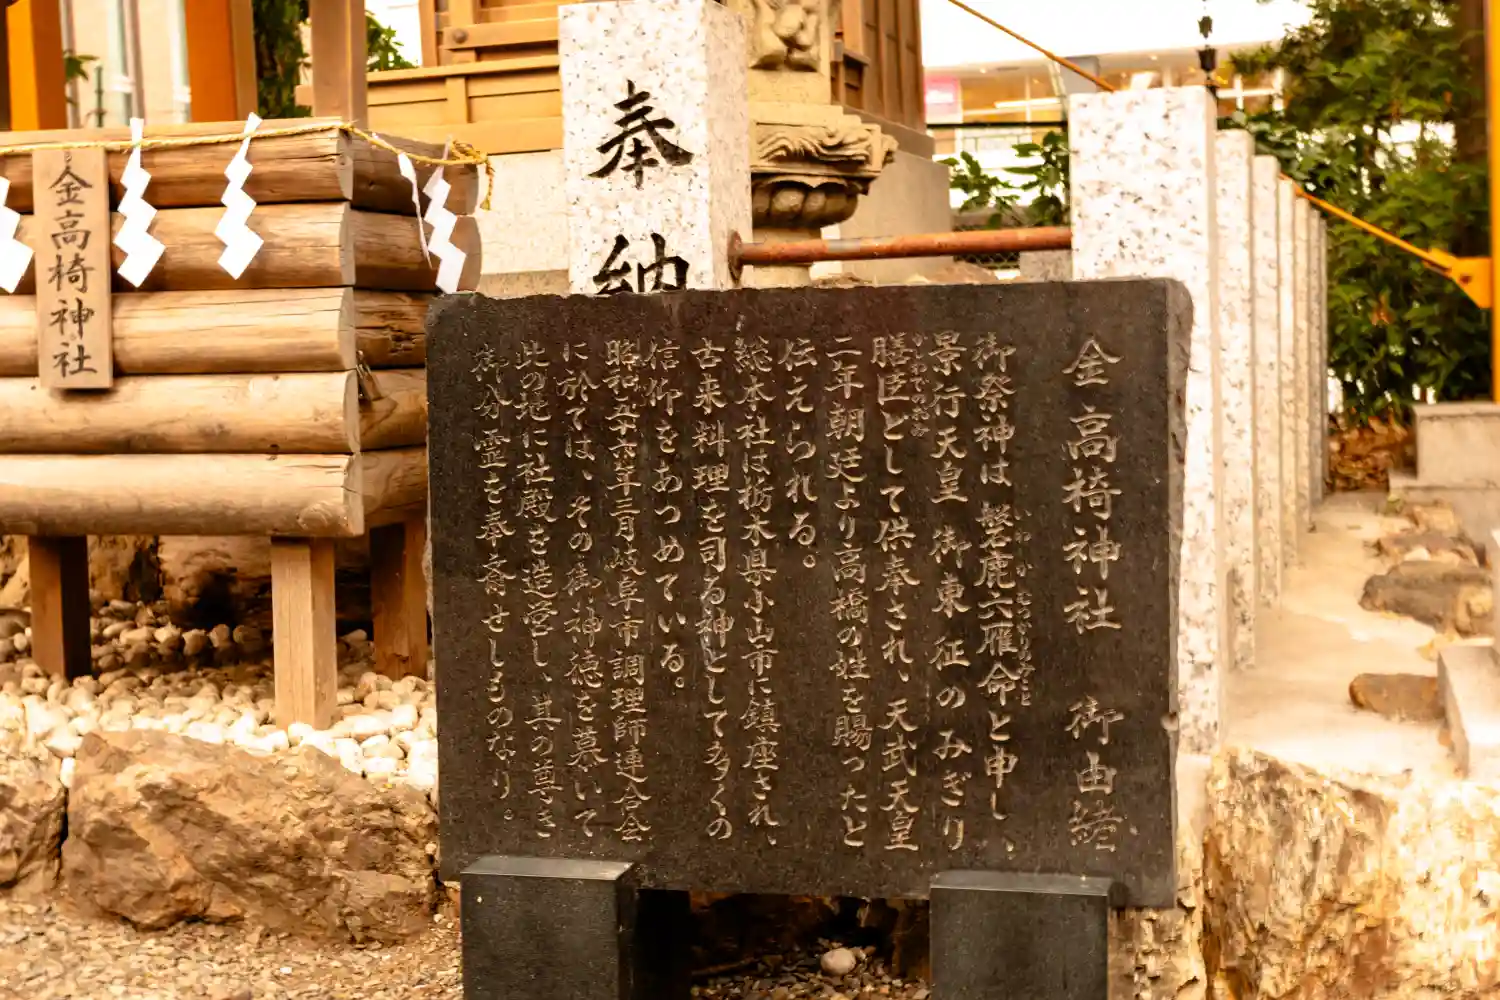 奉納
金高椅神社
金高椅神社 御由緒
御祭神は 磐鹿六雁命と申し、
いわかむつかりのみこと
景行天皇 御東征のみぎり
膳臣として供奉され、天武天皇
かしわでのおみ
二年朝廷より高橋の姓を賜ったと
伝えられる。
総本社は栃木県小山市に鎮座され、
古来料理を司る神として多くの
信仰をあつめている。
昭和五十六年三月岐阜市調理師連合会
に於ては、その御神徳を慕いて
此の地に社殿を造営し、其の尊き
御分霊を奉斎せしものなり。